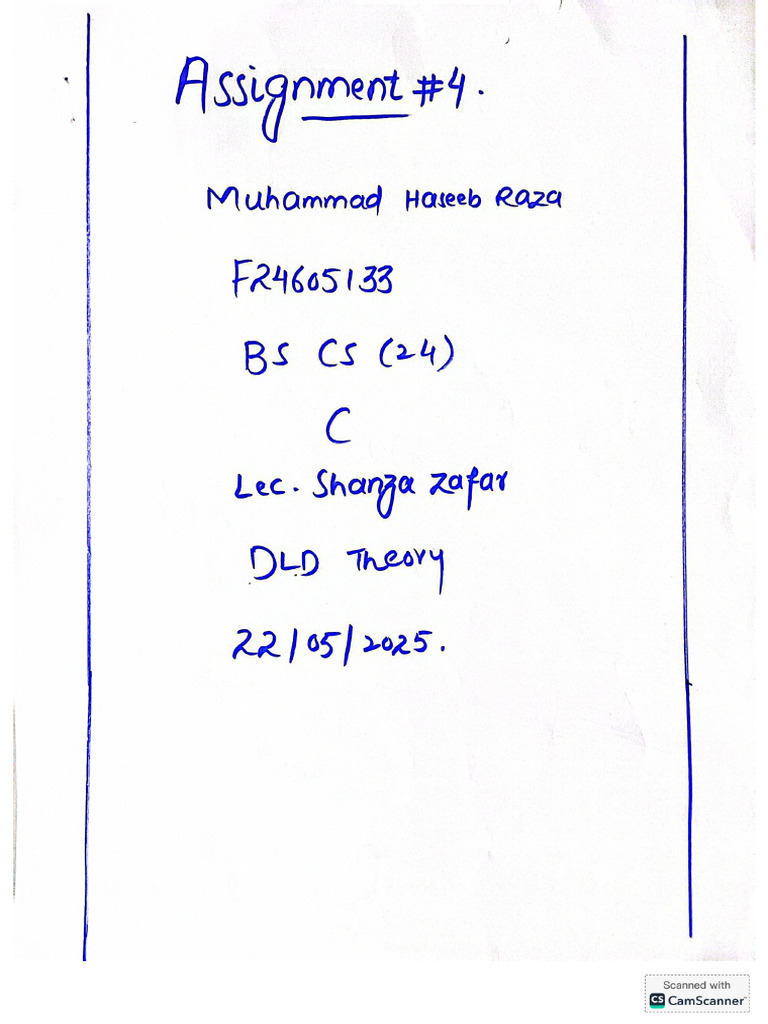 Assignment #4.
Muhammad Haseeb Raza
F24605133
BS CS (24)
C
Lec. Shanza Zafar
DLD Theory
22/05/2025.
Scanned with
CS CamScanner